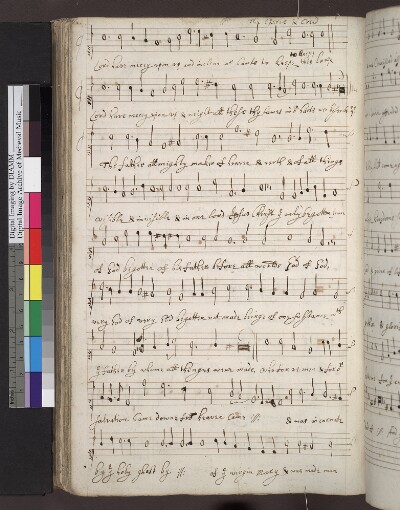 Kirie & Cred
Lord have mercy upon us and incline or harts to keepe this law
Lord have mercy upon us & wright all these thy lawes in or harts we
The father allmighty maker of heaven & earth & of all things
visible & invisible & in one lord Jesus Christ ye only begotten
of God begotten of his father before all worlds God of God,
very God of very God begotten not made beinge of one substance wth
ye father by whome all thinges were made, who for us men & for or
salvation Came downe from heaven Came :||: & was incarnate
by ye holy ghost by :||: of ye virgin Mary & was made man
Digital Imaging by DIAMM
Digital Image Archive of Medieval Music